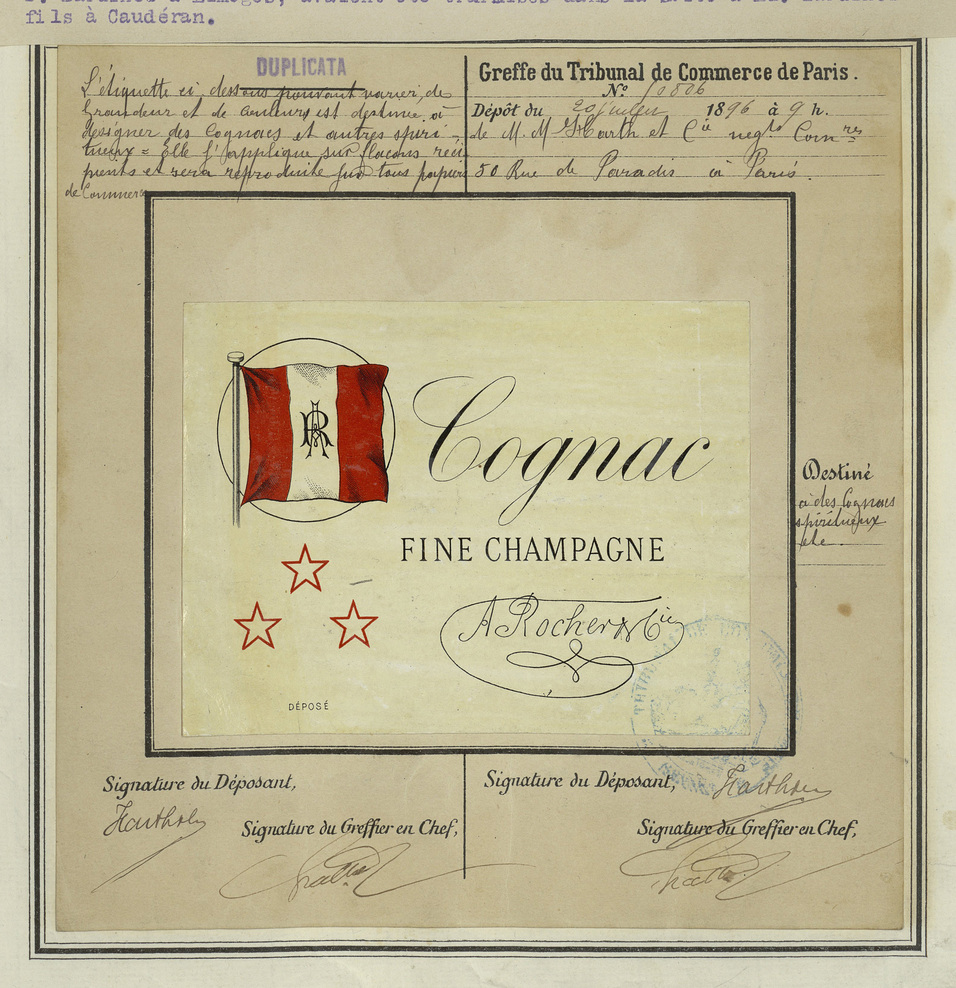 fils à Caudéran.
DUPLICATA
L'étiquette ci, dessous pouvant varier, de
Grandeur et de couleurs est destinée à
désigner des Cognacs et autres spiri-
tueux = Elle s'applique sur flacons réci
pients et sera reproduite sur tous papiers
de Commerce
Greffe du Tribunal de Commerce de Paris.
No 50806
Dépôt du 20 juillet 1896 à 9 h.
de M. M Harth et Cie negts Comres
50 Rue de Paradis à Paris.
AR
Cognac
FINE CHAMPAGNE
A Rocher & Cie
DÉPOSÉ
Destiné
à des Cognacs
spiritueux
etc.
Signature du Déposant,
Signature du Greffier en Chef,
Signature du Déposant,
Signature du Greffier en Chef,